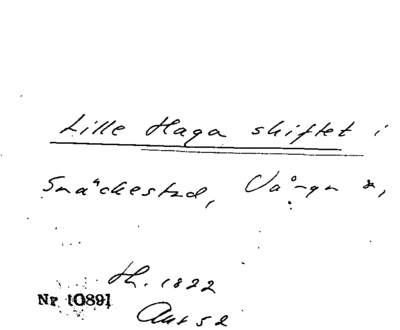 Lille Haga skiftet i
Snäckestad, Vånga *,
H. 1822
Nr [089]
Ant 52